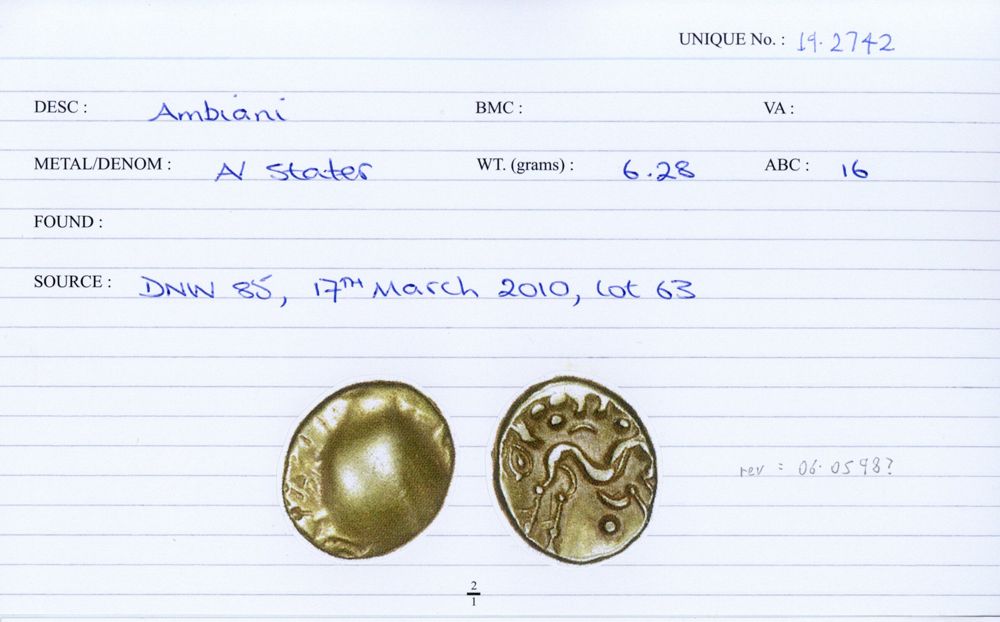 UNIQUE No. : 19.2742
DESC : Ambiani BMC : VA :
METAL/DENOM : AV Stater WT. (grams) : 6.28 ABC : 16
FOUND :
SOURCE : DNW 85, 17TH March 2010, Lot 63
rev : 06.0598?
2
1